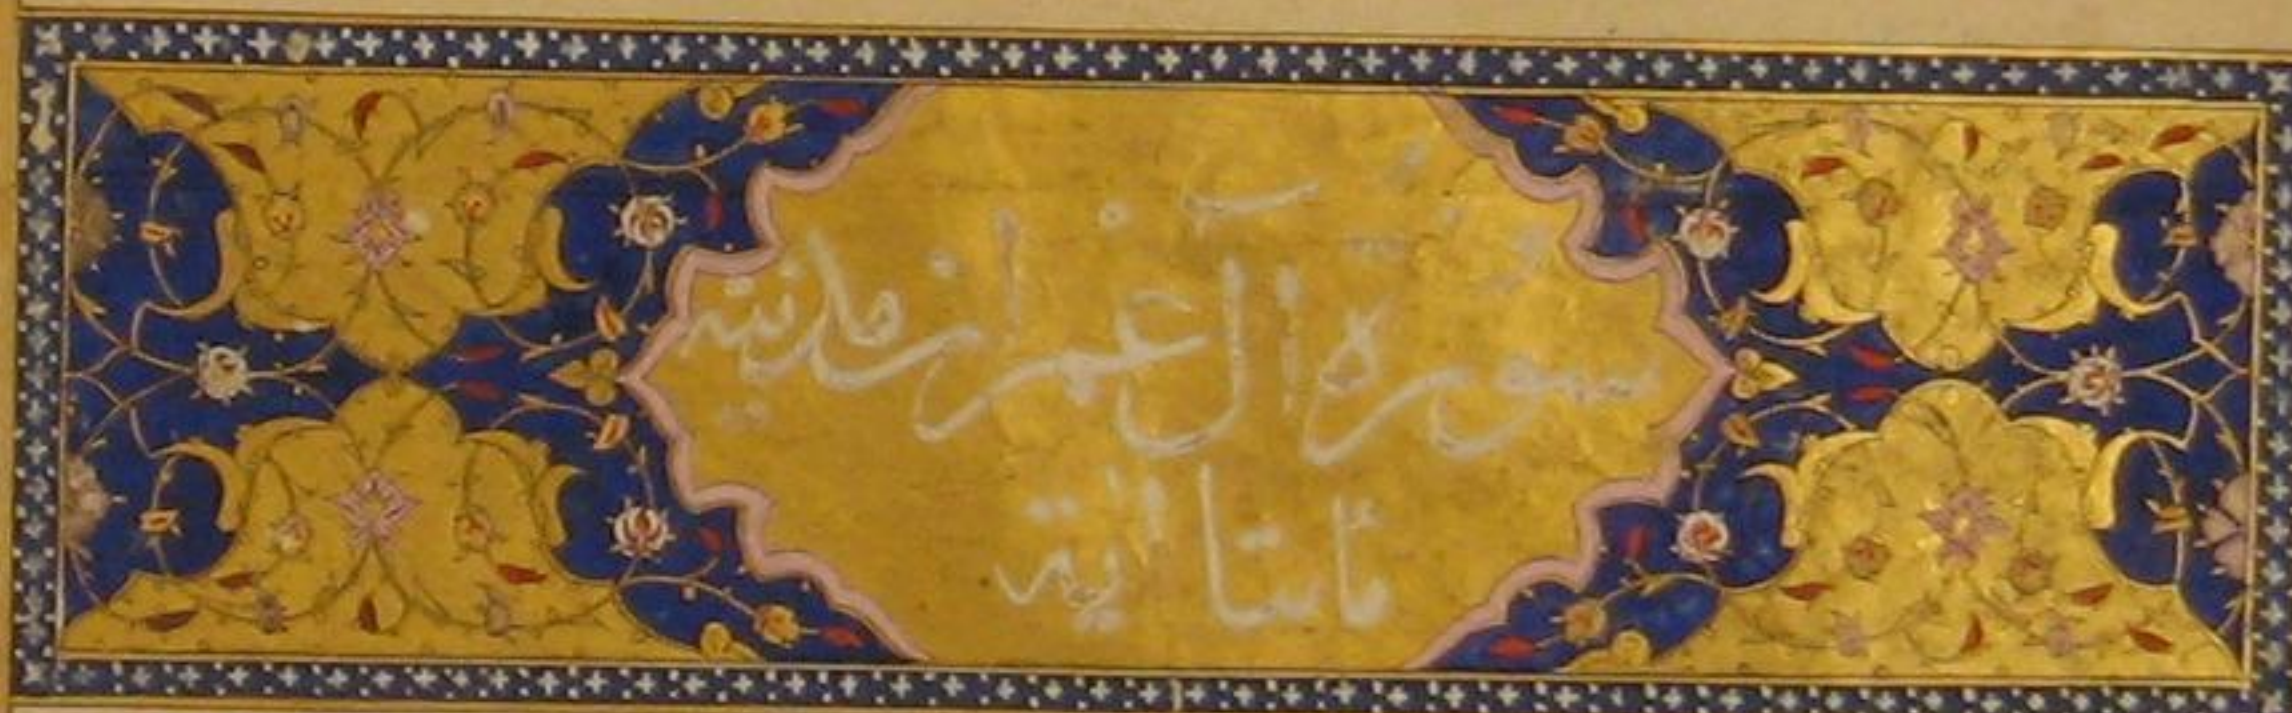 سورة آل عمران مدنية
مأيتا آية